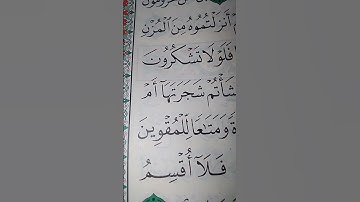 أَنزَلْتُمُوهُ مِنَ ٱلْمُزْنِ
فَلَوْلَا تَشْكُرُونَ
شَأْتُمْ شَجَرَتَهَآ أَمْ
وَمَتَٰعًا لِّلْمُقْوِينَ
فَلَآ أُقْسِمُ